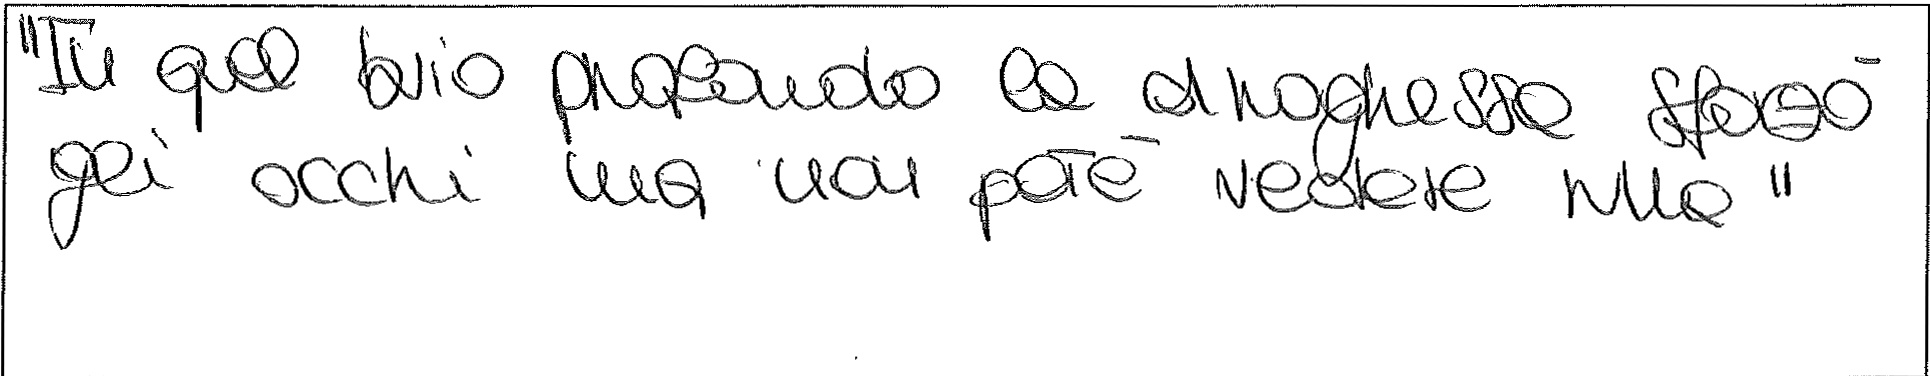 "In quel buio profondo la dragoressa sforzò
gli occhi ma non potè vedere nulla"